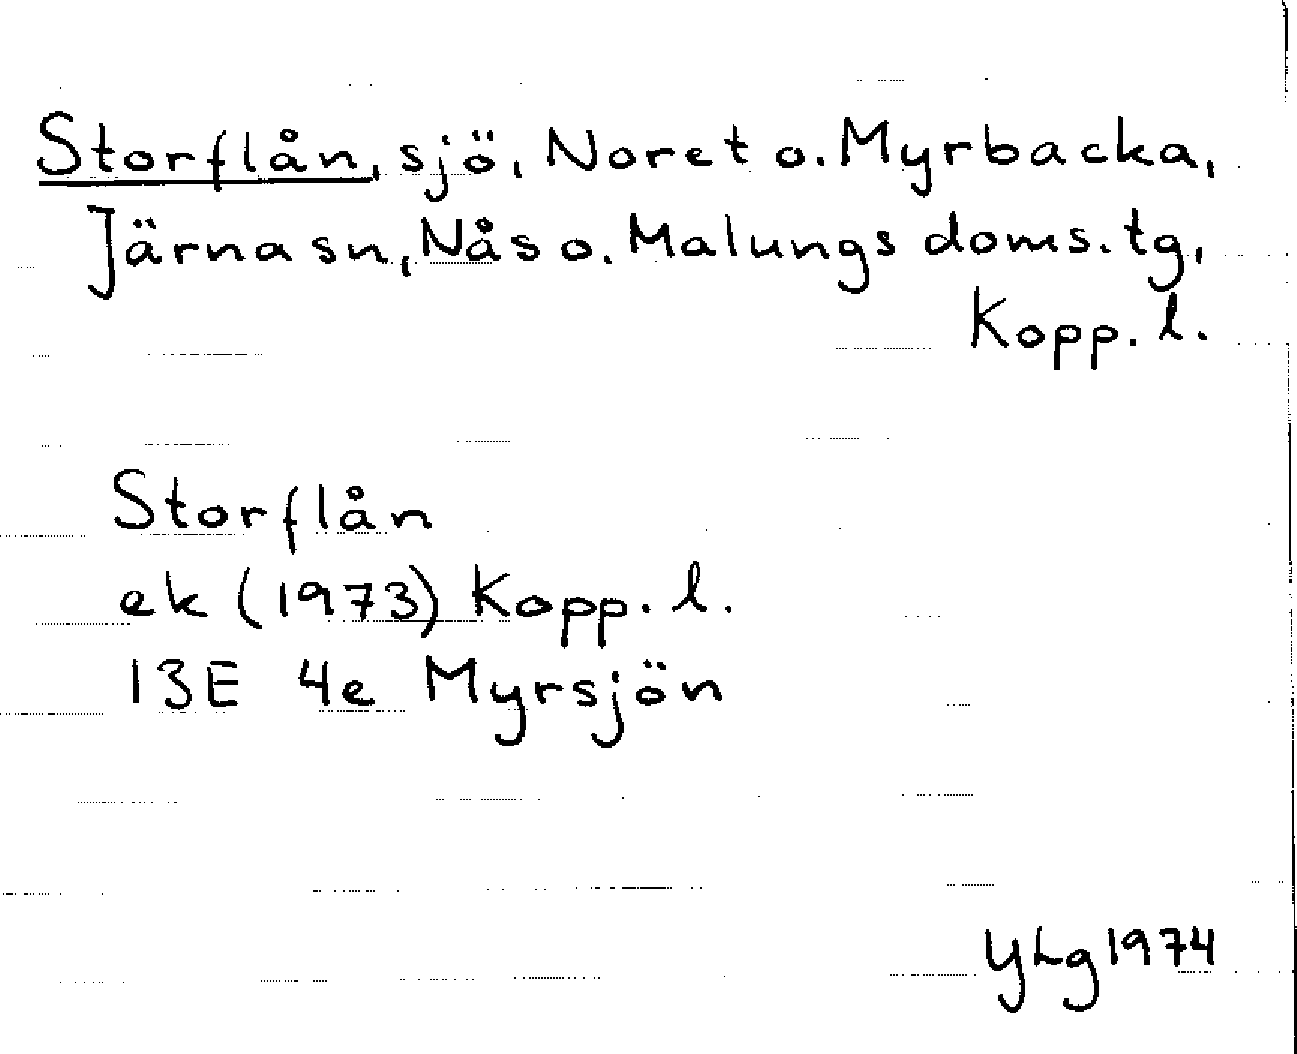 Storflån, sjö, Noret o. Myrbacka,
Järna sn, Nås o. Malungs doms. tg,
Kopp. l.
Storflån
ek (1973) Kopp. l.
13E 4e Myrsjön
YLg 1974